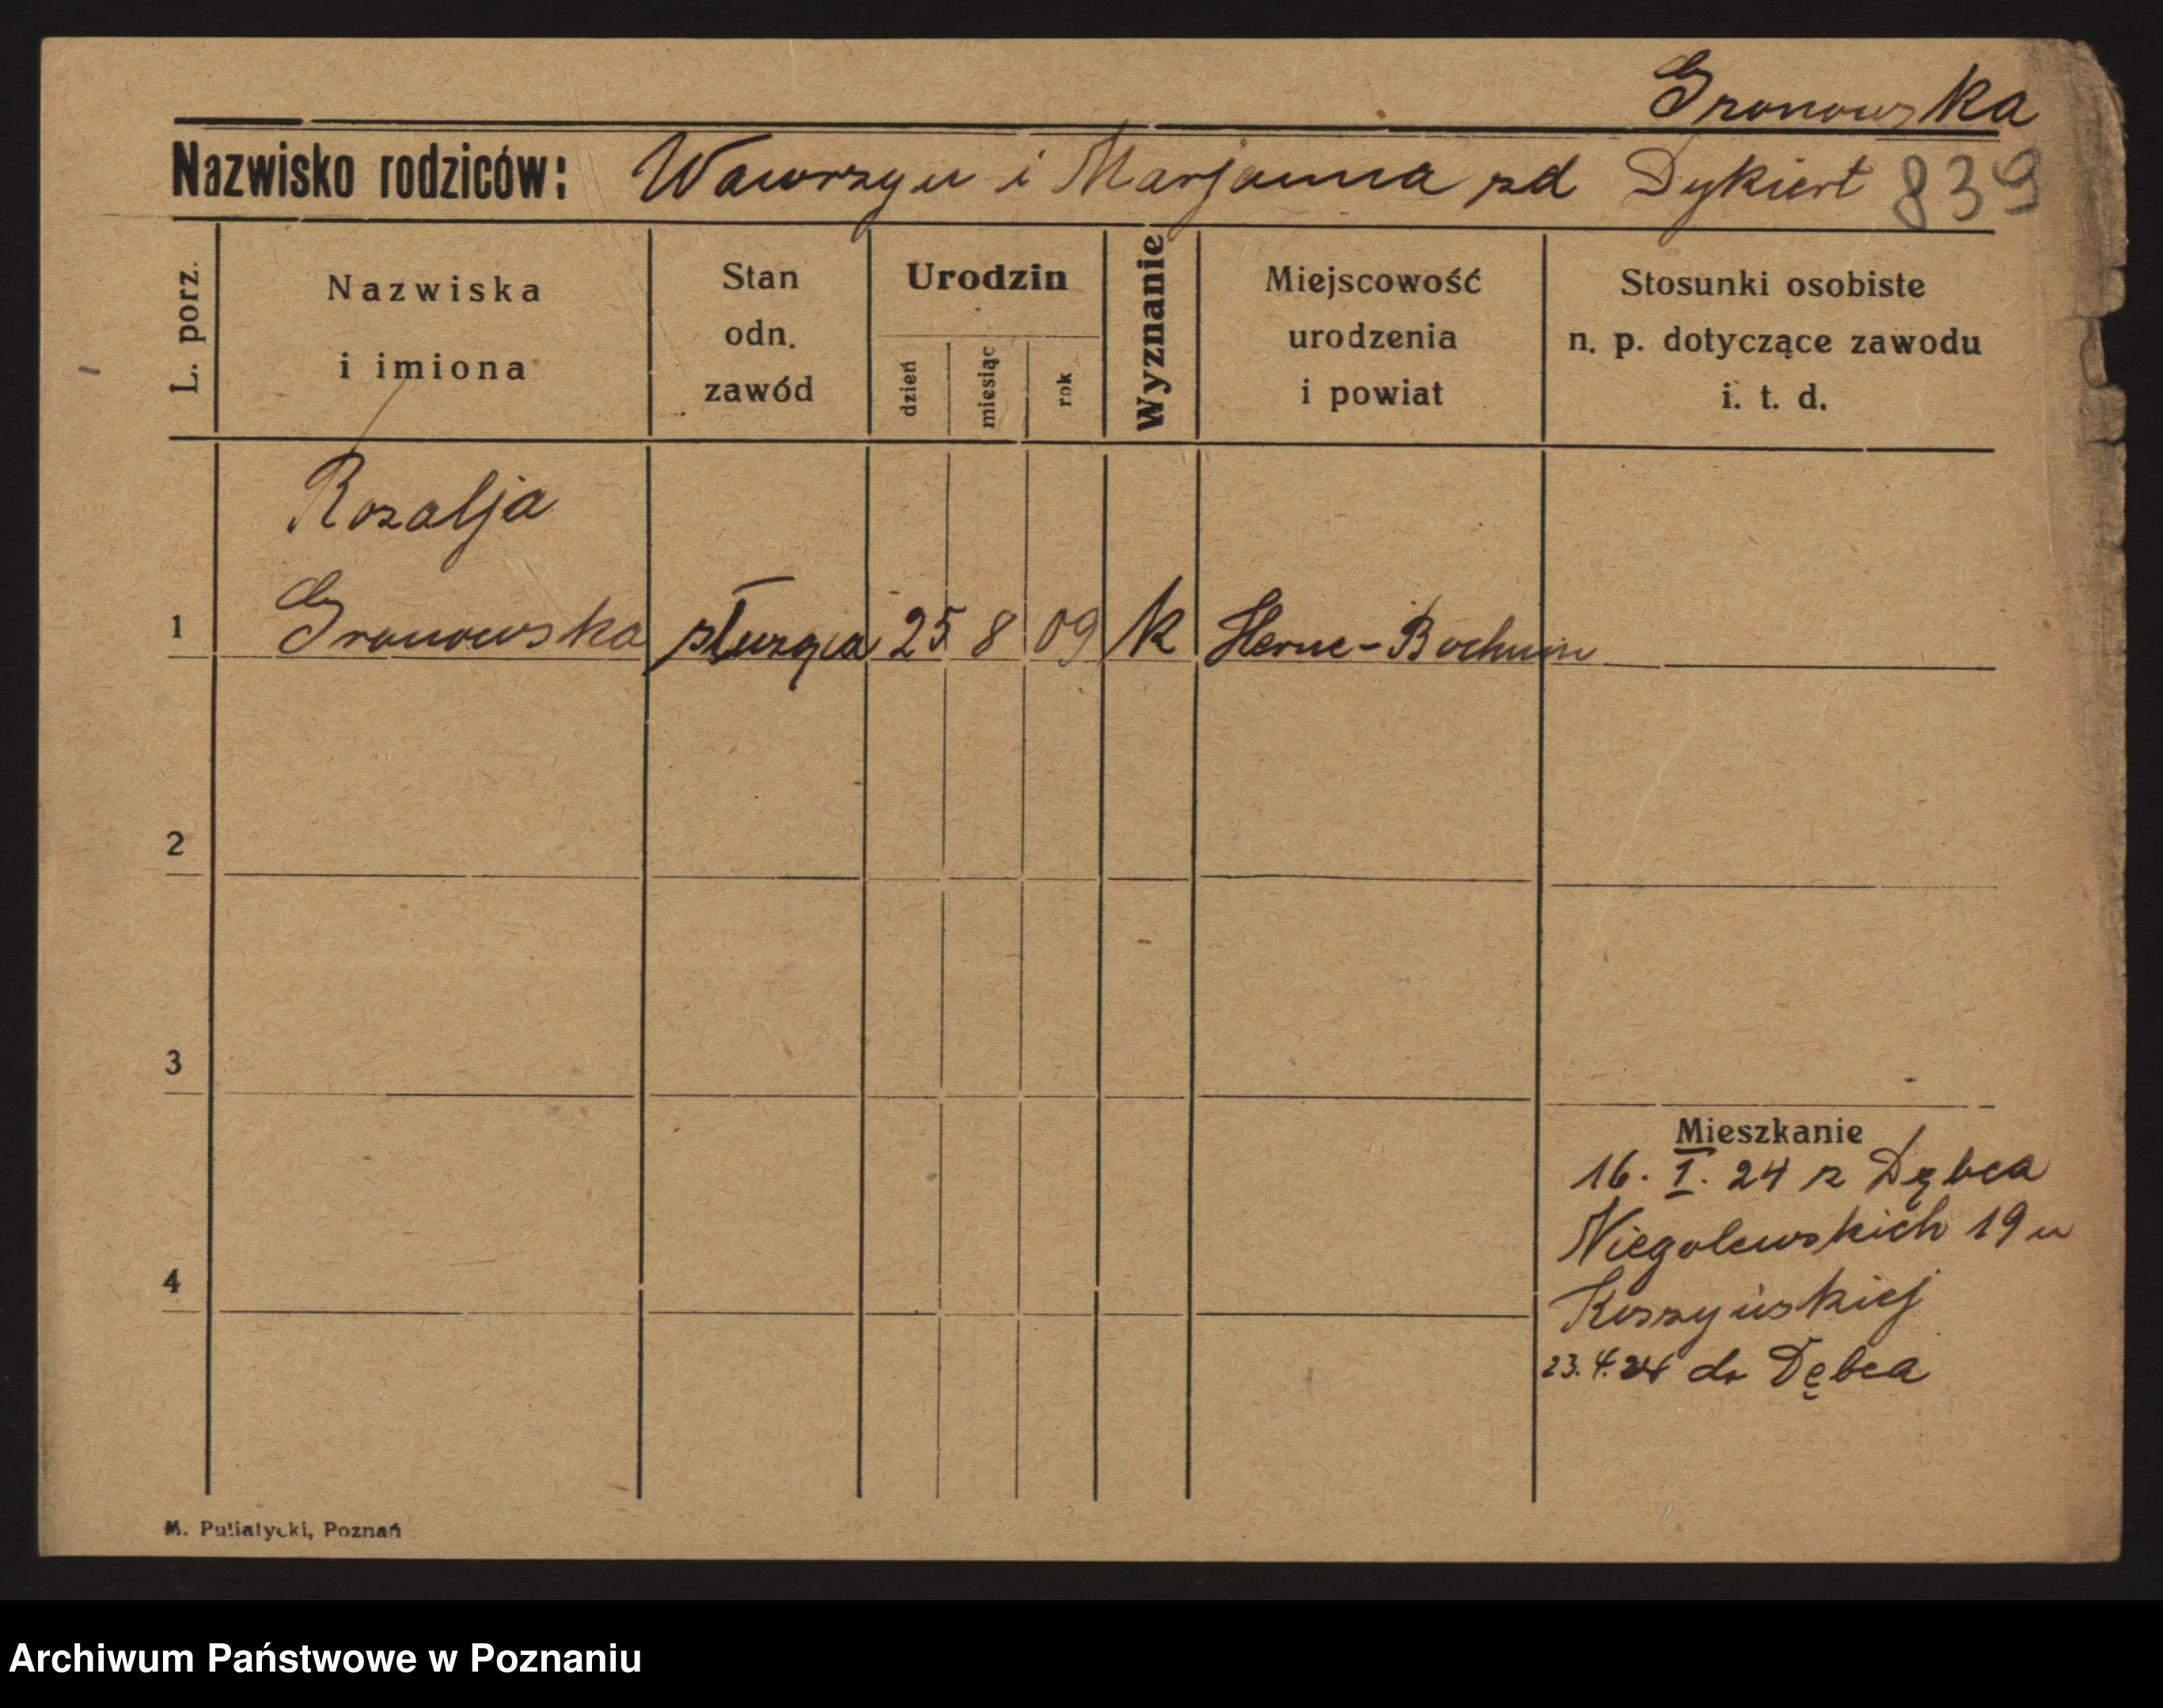 Gronowska
Nazwisko rodziców: Wawrzyn i Marjanna zd Dykiert 839
L. porz.
Nazwiska
i imiona
Stan
odn.
zawód
Urodzin
dzień
miesiąc
rok
Wyznanie
Miejscowość
urodzenia
i powiat
Stosunki osobiste
n. p. dotyczące zawodu
i. t. d.
Rozalja
1 Gronowska służąca 25 8 09 k Herne-Bochum
2
3
Mieszkanie
16. I. 24 z Dębca
Niegolewskich 19 u
4
23. 4. 24 do Dębca
M. Putiatycki, Poznań
Archiwum Państwowe w Poznaniu